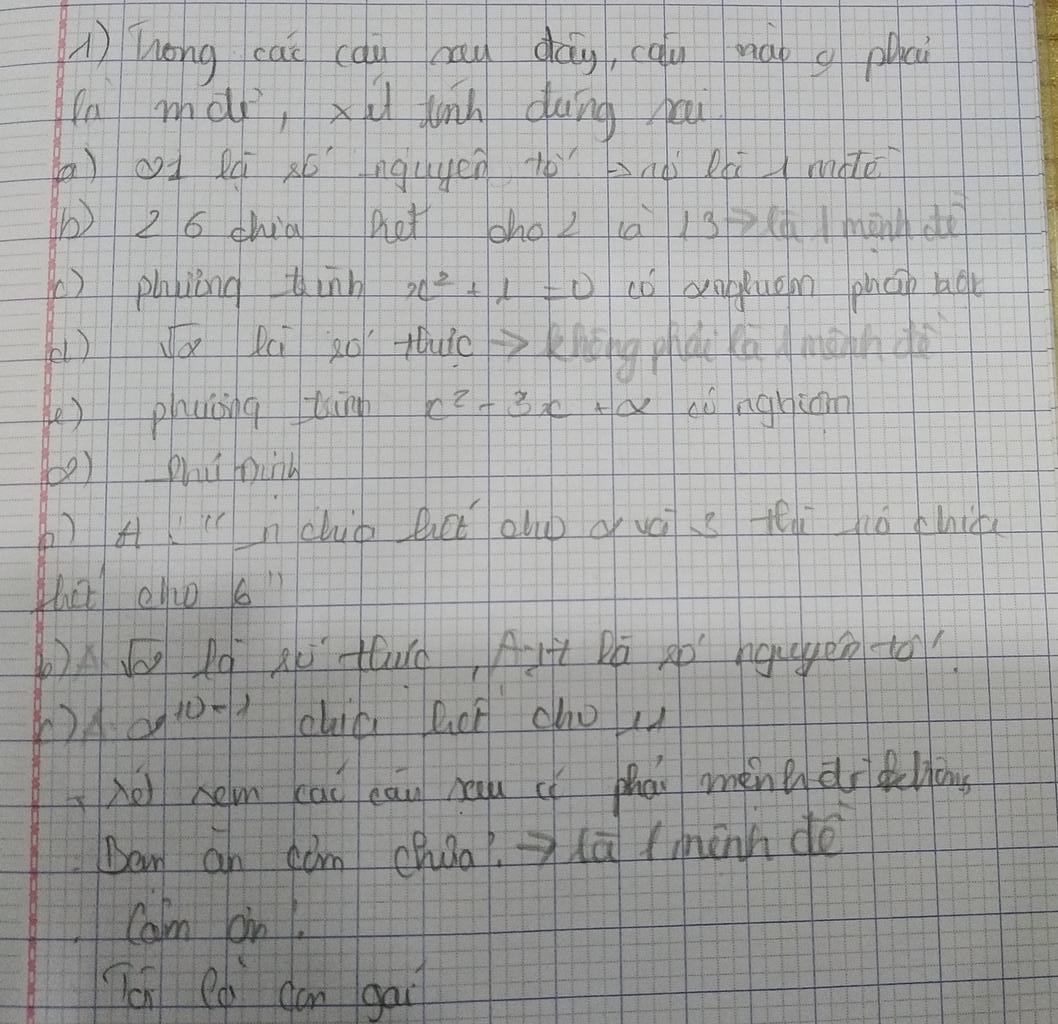 1) Trong các câu sau đây, câu nào phải
là mđề, xét tính đúng sai
a) 21 là số nguyên tố → nó là 1 mđề
b) 26 chia hết cho 2 và 13 → là 1 mệnh đề
c) phương trình x² + 1 = 0 có 2 nghiệm phân biệt
d) √2 là số thực → không phải là 1 mệnh đề
e) phương trình x² - 3x + 2 có nghiệm
2) Phủ định
A: "n chia hết cho 2 và 3 thì nó chia
hết cho 6"
b) A √2 là số thực, A là số nguyên tố".
c) A 2¹⁰-1 chia hết cho 11
- Xét xem các câu sau có phải mệnh đề không
Bạn ăn cơm chưa? → là 1 mệnh đề
Cảm ơn!
Tôi là con gái